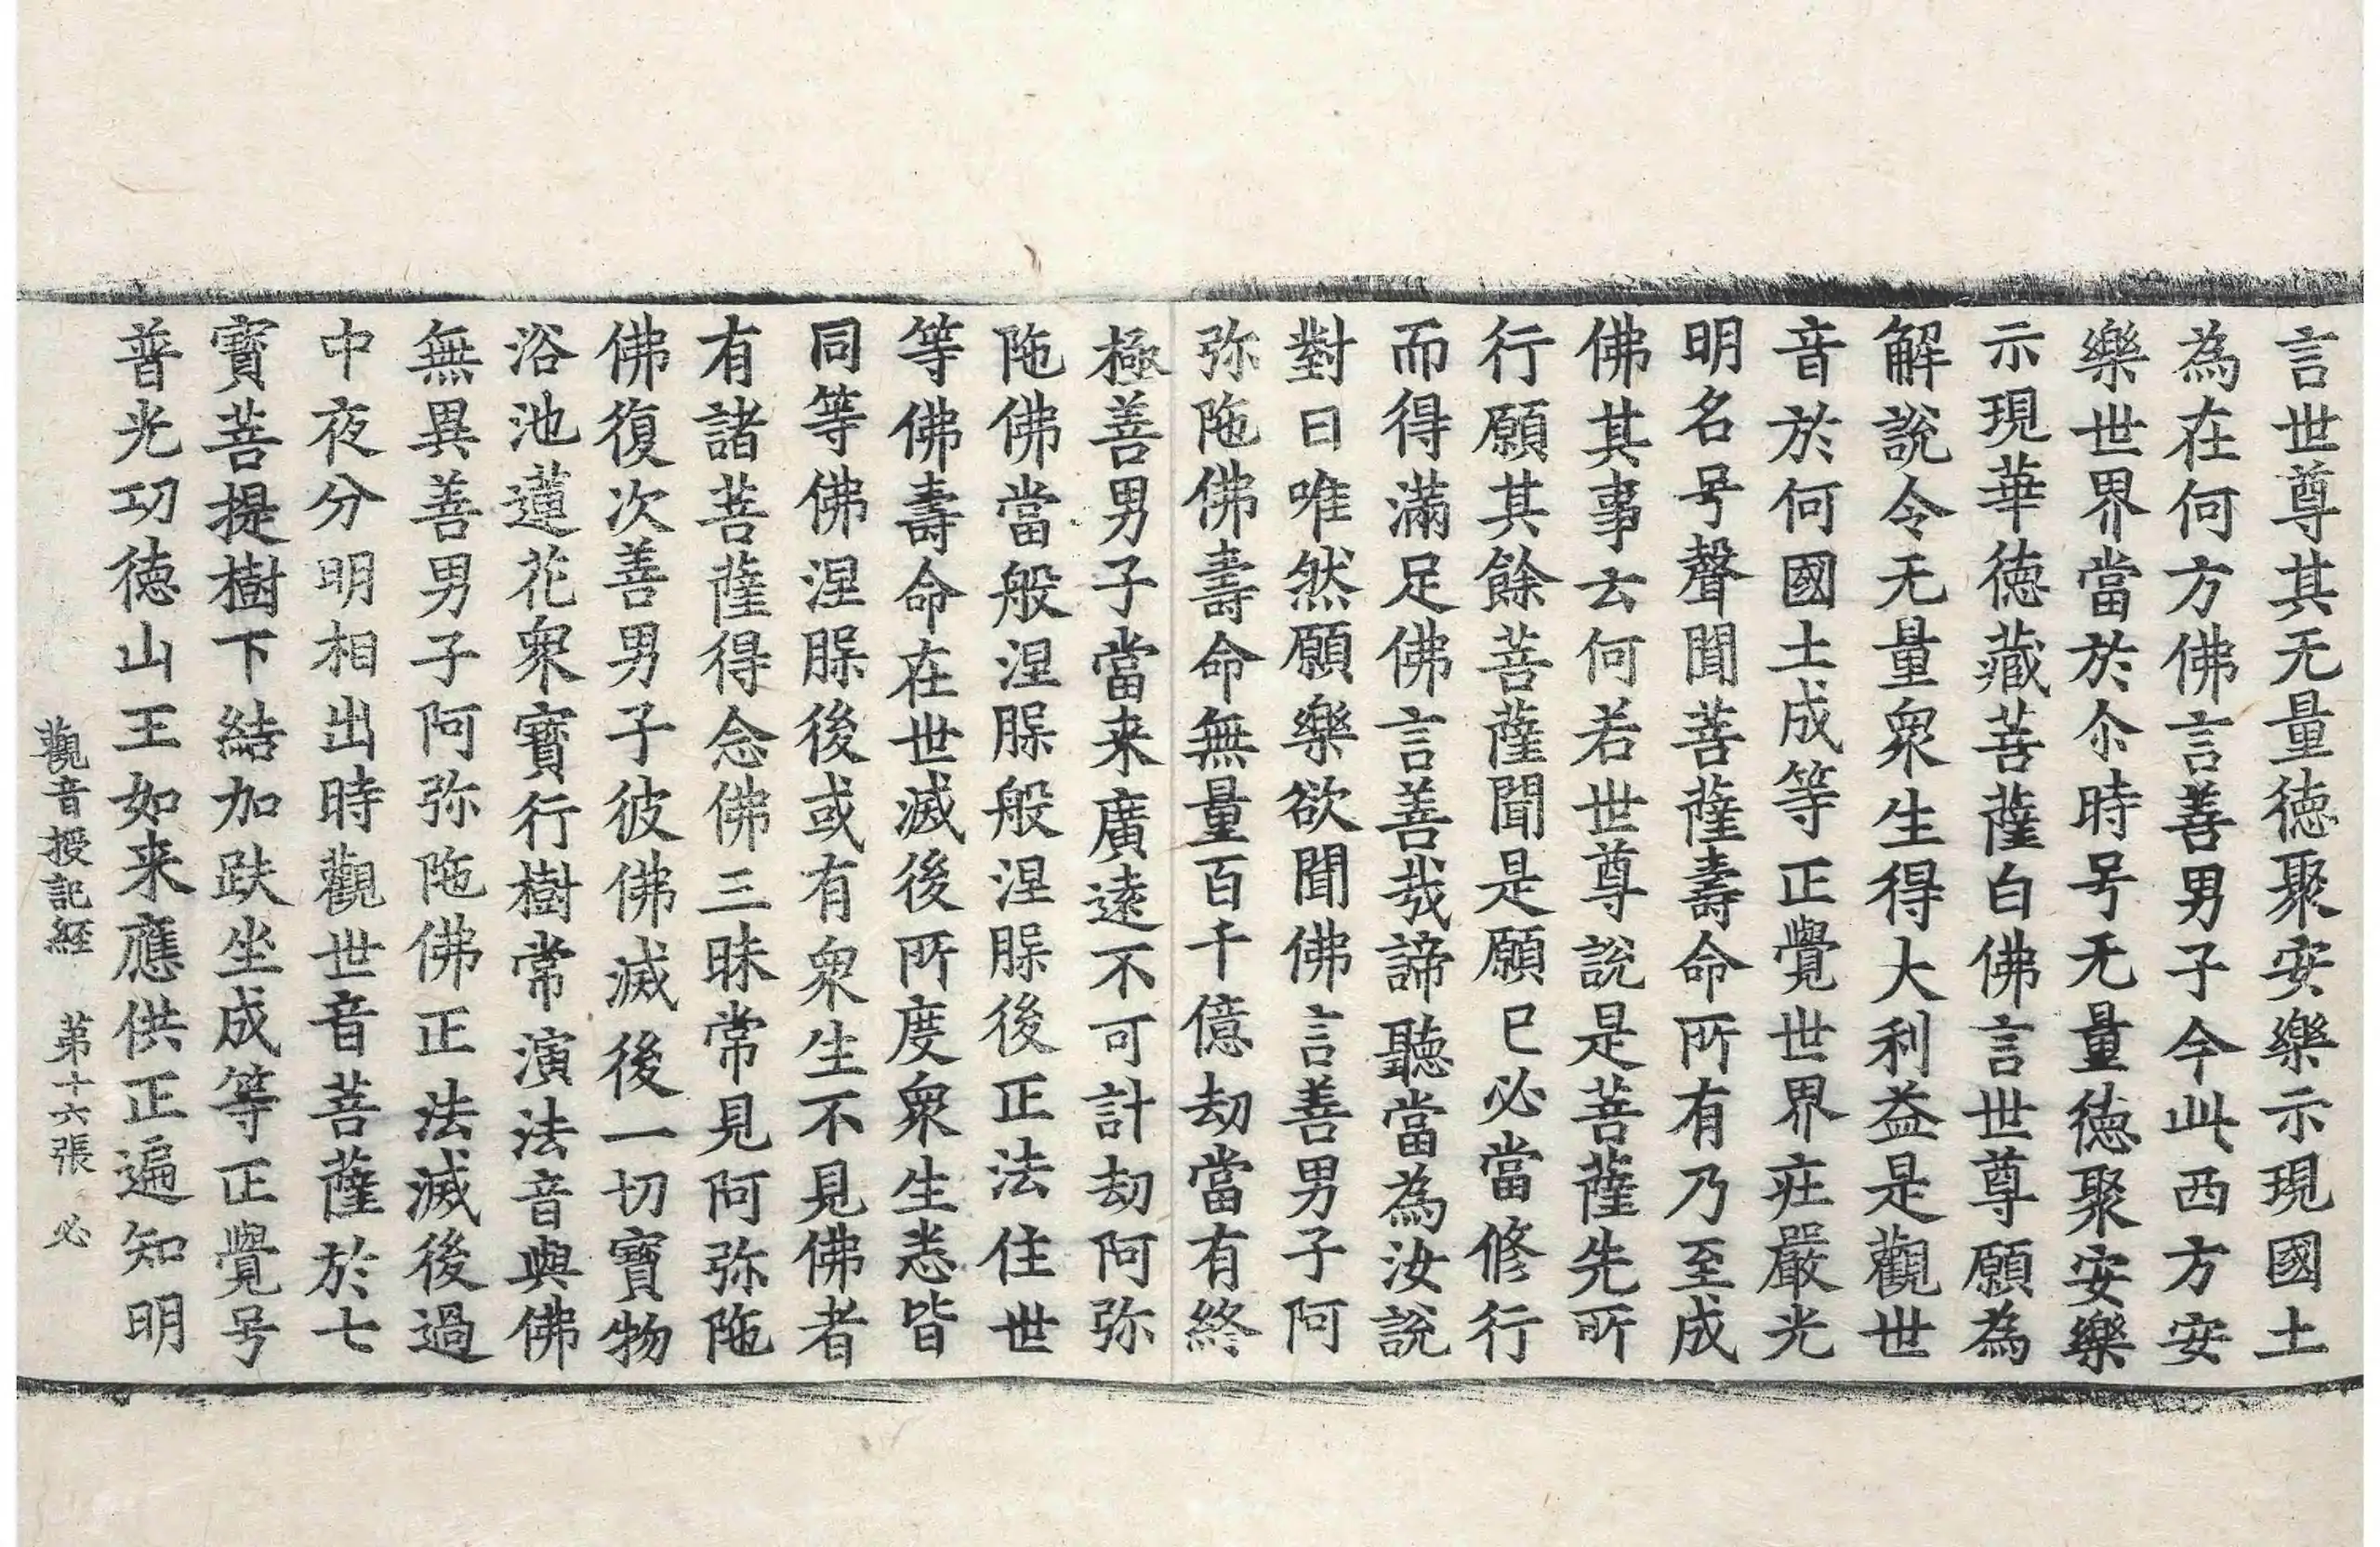 言世尊其无量德聚安樂示現國土
為在何方佛言善男子今此西方安
樂世界當於尒時号无量德聚安樂
示現華德藏菩薩白佛言世尊願為
解說令无量衆生得大利益是觀世
音於何國土成等正覺世界㽵嚴光
明名号聲聞菩薩壽命所有乃至成
佛其事云何若世尊說是菩薩先所
行願其餘菩薩聞是願已必當修行
而得滿足佛言善㢤諦聽當為汝說
對曰唯然願樂欲聞佛言善男子阿
弥陁佛壽命無量百千億劫當有終
極善男子當来廣遠不可計劫阿弥
陁佛當般涅槃般涅槃後正法住世
等佛壽命在世滅後所度衆生悉皆
同等佛涅槃後或有衆生不見佛者
有諸菩薩得念佛三昧常見阿弥陁
佛復次善男子彼佛滅後一切寳物
浴池蓮花衆寳行樹常演法音與佛
無異善男子阿弥陁佛正法滅後過
中夜分明相出時觀世音菩薩於七
寳菩提樹下結加趺坐成等正覺号
普光功德山王如来應供正遍知明
觀音授記経 苐十六張 必